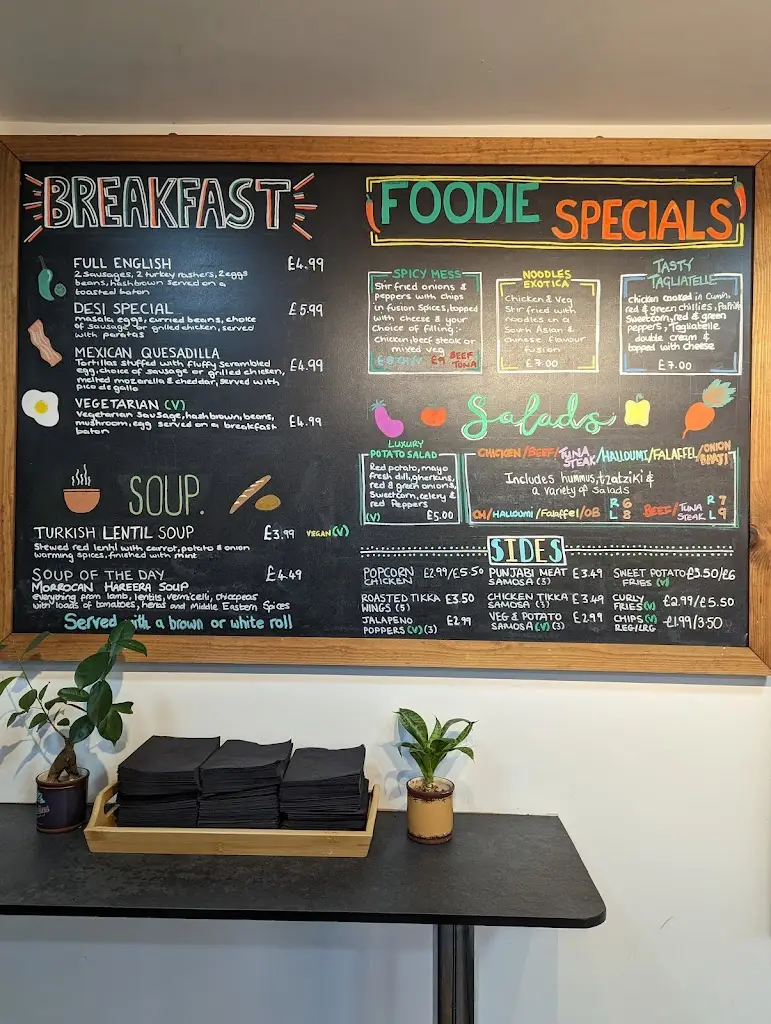 BREAKFAST
FULL ENGLISH £4.99
2 Sausages, 2 turkey rashers, 2 eggs
beans, hashbrown served on a
toasted baton
DESI SPECIAL £5.99
masala eggs, curried beans, choice
of sausage or grilled chicken, served
with paratas
MEXICAN QUESADILLA
Tortillas stuffed with fluffy scrambled £4.99
egg, choice of sausage or grilled chicken,
melted mozarella & cheddar, served with
pico de gallo
VEGETARIAN (V)
Vegetarian Sausage, hashbrown, beans, £4.99
mushroom, egg served on a breakfast
baton
SOUP.
TURKISH LENTIL SOUP £3.99 VEGAN (V)
Stewed red lentil with carrot, potato & onion
warming spices, finished with mint
SOUP OF THE DAY £4.49
MORROCAN HAREERA SOUP
everything from lamb, lentils, vermicelli, chickpeas
with loads of tomatoes, herbs and Middle Eastern Spices
Served with a brown or white roll
FOODIE SPECIALS
SPICY MESS
Stir fried onions &
peppers with chips
in fusion spices, topped
with cheese & your
choice of filling:-
chicken, beef steak or
mixed veg
£9 BEEF
TUNA
NOODLES
EXOTICA
Chicken & Veg
Stir fried with
noodles in a
South Asian &
Chinese flavour
fusion
£7.00
TASTY
TAGLIATELLE
chicken cooked in Cumin,
red & green chillies, Paprika
Sweetcorn, red & green
peppers, Tagliatelle
double cream &
topped with cheese
£7.00
Salads
LUXURY
POTATO SALAD
Red potato, mayo
fresh dill, gherkins,
red & green onions,
Sweetcorn, celery &
red Peppers
(V) £5.00
CHICKEN/BEEF/TUNA STEAK/HALLOUMI/FALAFFEL/ONION BHAJI
Includes hummus, tzatziki &
a variety of Salads
CH/HALLOUMI/Falaffel/OB R 6 L 8 BEEF/TUNA STEAK R 7 L 9
SIDES
POPCORN CHICKEN £2.99/£5.50
ROASTED TIKKA WINGS (5) £3.50
JALAPENO POPPERS (V) (3) £2.99
PUNJABI MEAT SAMOSA (3) £3.49
CHICKEN TIKKA SAMOSA (3) £3.49
VEG & POTATO SAMOSA (V) (3) £2.99
SWEET POTATO FRIES (V) £3.50/£6
CURLY FRIES (V) £2.99/£5.50
CHIPS (V) REG/LRG £1.99/3.50